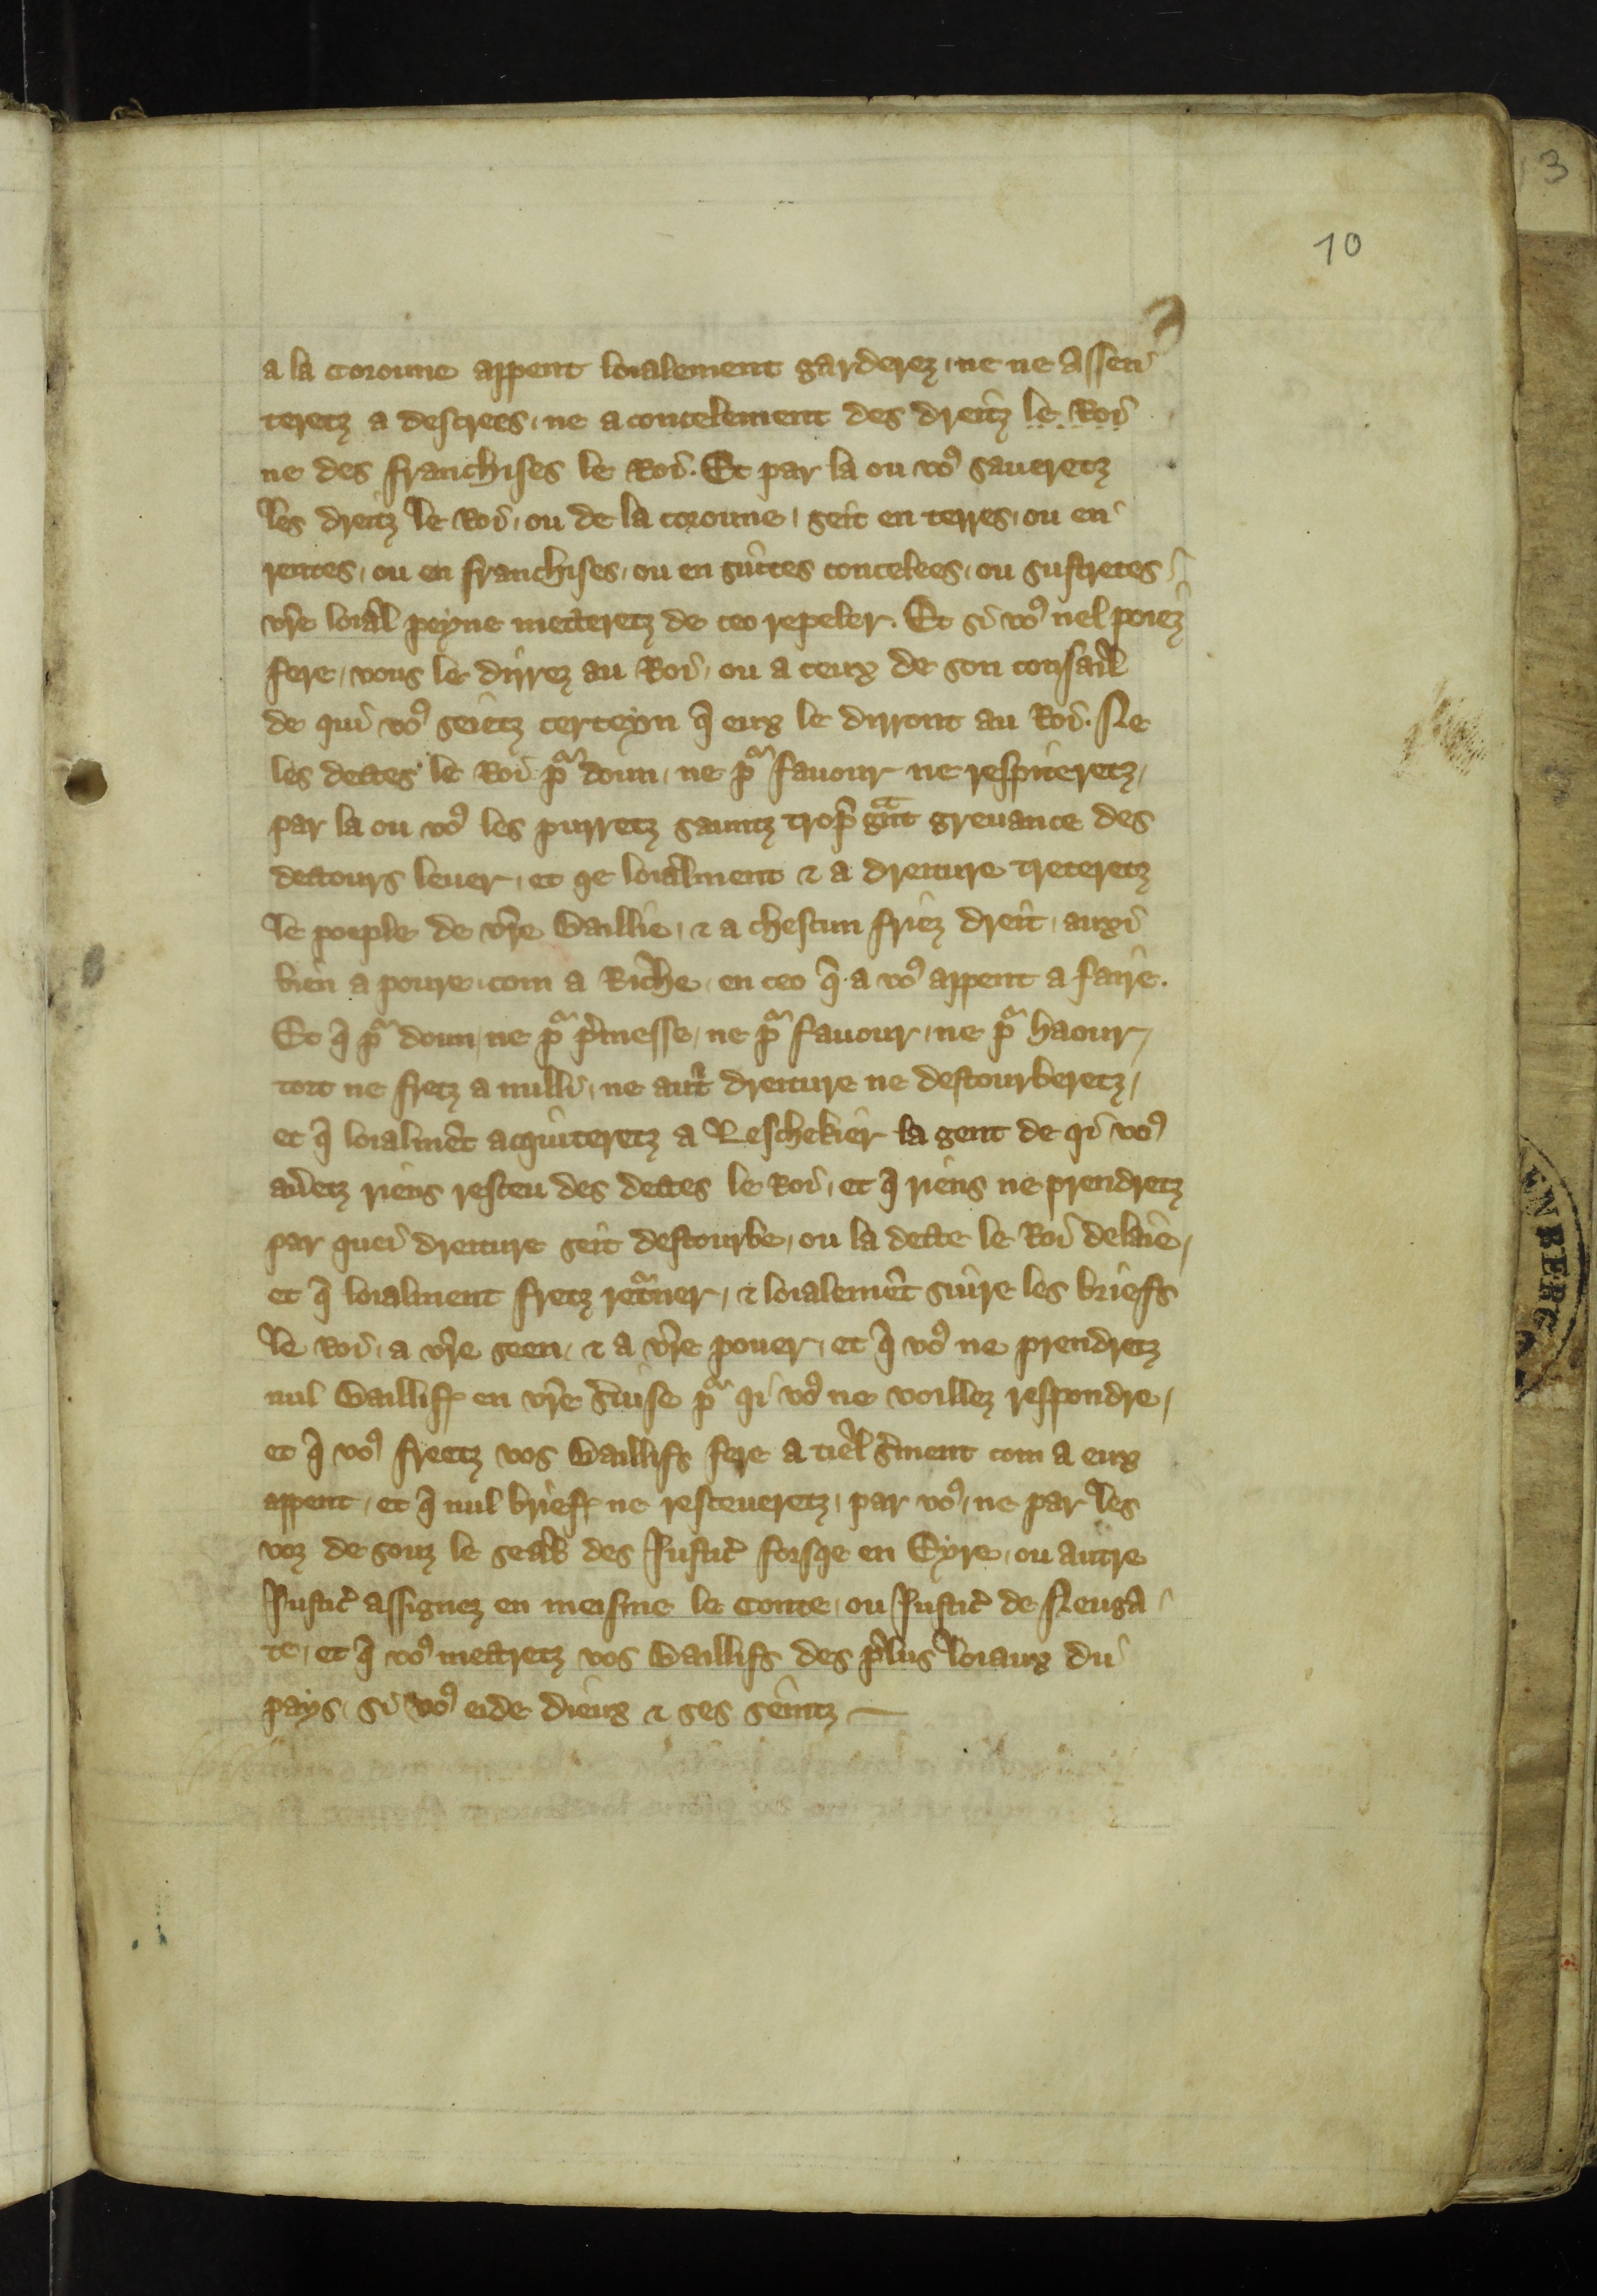 10
a la coroune appent loialement garderez, ne ne assen
teretz a descrees, ne a concelement des dreitz le Roi
ne des franchises le Roi. Et par la ou vo9 saueretz
les dreitz le Roi, ou de la coroune, seit en terres, ou en
rentes, ou en franchises, ou en suites concelees, ou sustretes
vr̃e loial peyne metteretz de ceo repeler. Et si vo9 nel poiez
fere, vous le dirrez au Roi, ou a ceux de son consail
de qui vo9 seietz certeyn q̃ eux le dirront au Roi. Ne
les dettes le Roi pͣ doun, ne pͣ fauour ne respiteretz,
par la ou vo9 les purretz sauntz trop gͣnt greuance des
dettours leuer, et qe loialment & a dreiture treteretz
le poeple de vr̃e Baillie, & a chescun friez dreit, auxi
bien a poure, com a Riche, en ceo q̃ a vo9 appent a faire.
Et q̃ pͣ doun, ne pͣ p̃messe, ne pͣ fauour, ne pͣ haour,
tort ne fretz a nulli, ne aut̃ dreiture ne destourberetz,
et q̃ loialmẽt acquiteretz a Leschekier la gent de qi vo9
aũetz riens resceu des dettes le Roi, et q̃ riens ne prendretz
par quei dreiture seit destourbe, ou la dette le Roi delaie,
et q̃ loialment fretz retͣner, & loialemẽt suire les briefs
le Roi, a vr̃e seen, & a vr̃e pouer, et q̃ vo9 ne prendretz
nul Baillif en vr̃e s̃uise pͣ qi vo9 ne voillez respondre,
et q̃ vo9 freetz vos Baillifs fere a tiel s̃ment com a eux
appent, et q̃ nul brief ne resceueretz, par vo9, ne par les
voz de souz le seal des Justic̃ forsqe en Eyre, ou autre
Justic̃ assignez en meisme le Conte, ou Justic̃ de Neuga
te, et q̃ vo9 mettretz vos Baillifs des plus loiaux du
pays, si vo9 eide dieux & ses seintz
3